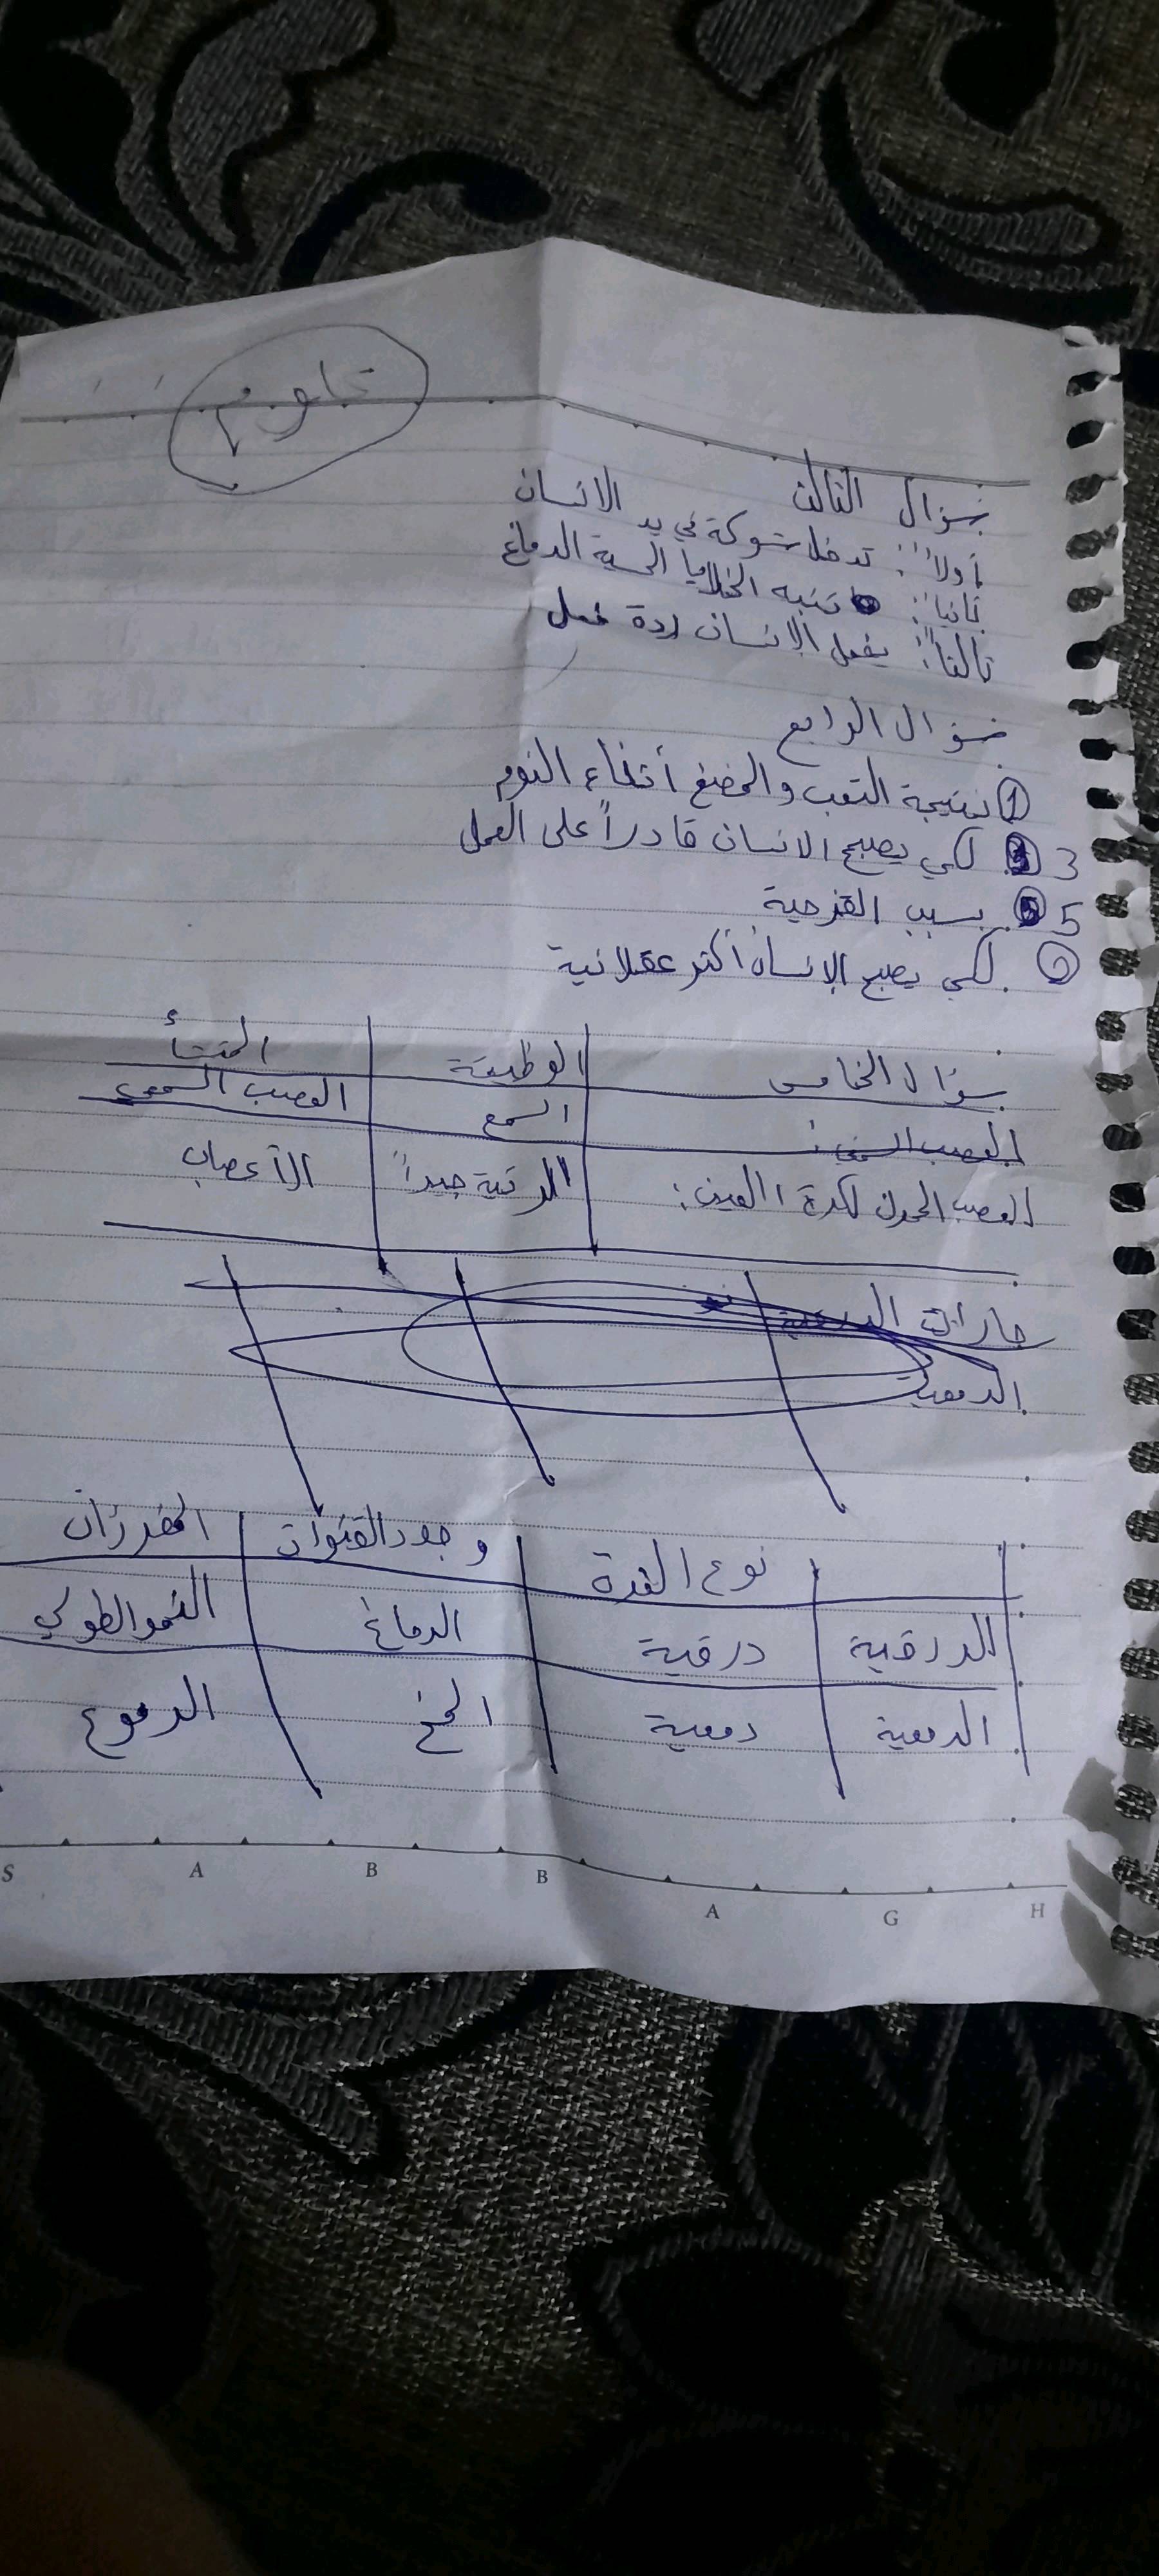 علوم
سؤال الثالث
أولاً: تدخل شوكة في يد الانسان
ثانياً: تنبه الخلايا الحسية الدماغ
ثالثاً: يفعل الإنسان ردة فعل
سؤال الرابع
① نتيجة التعب والمضغ أثناء النوم
3 لكي يصبح الانسان قادراً على العمل
5 بسبب القزحية
لكي يصبح الإنسان أكثر عقلانية
سؤال الخامس الوظيفة المنشأ
العصب السمعي: السمع العصب السمعي
العصب المحرك لكرة العين: الرئية جيداً الأعصاب
الدمعية
نوع الغدة وجود القنوات المفرزات
الدرقية درقية الدماغ النمو الطولي
الدمعية دمعية المخ الدموع
S A B B A G H